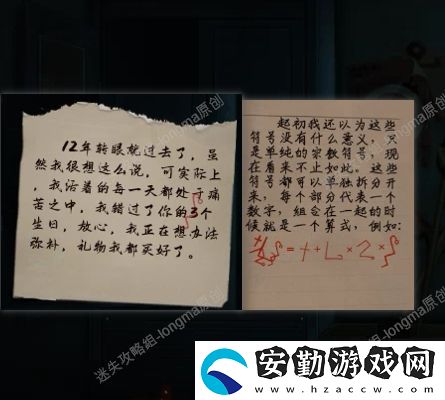 12年转眼就过去了，虽
然我很想这么说，可实际上
，我活着的每一天都处于痛
苦之中，我错过了你的3个
生日，放心，我正在想办法
弥补，礼物我都买好了。
起初我还以为这些
符号没有什么意义，只
是单纯的宗教符号，现
在看来不止如此。这些
符号都可以单独拆分开
来，每个部分代表一个
数字，组合在一起的时
候就是一个算式，例如：
迷失攻略组-longma原创
安勤游戏网
www.hzaccw.com